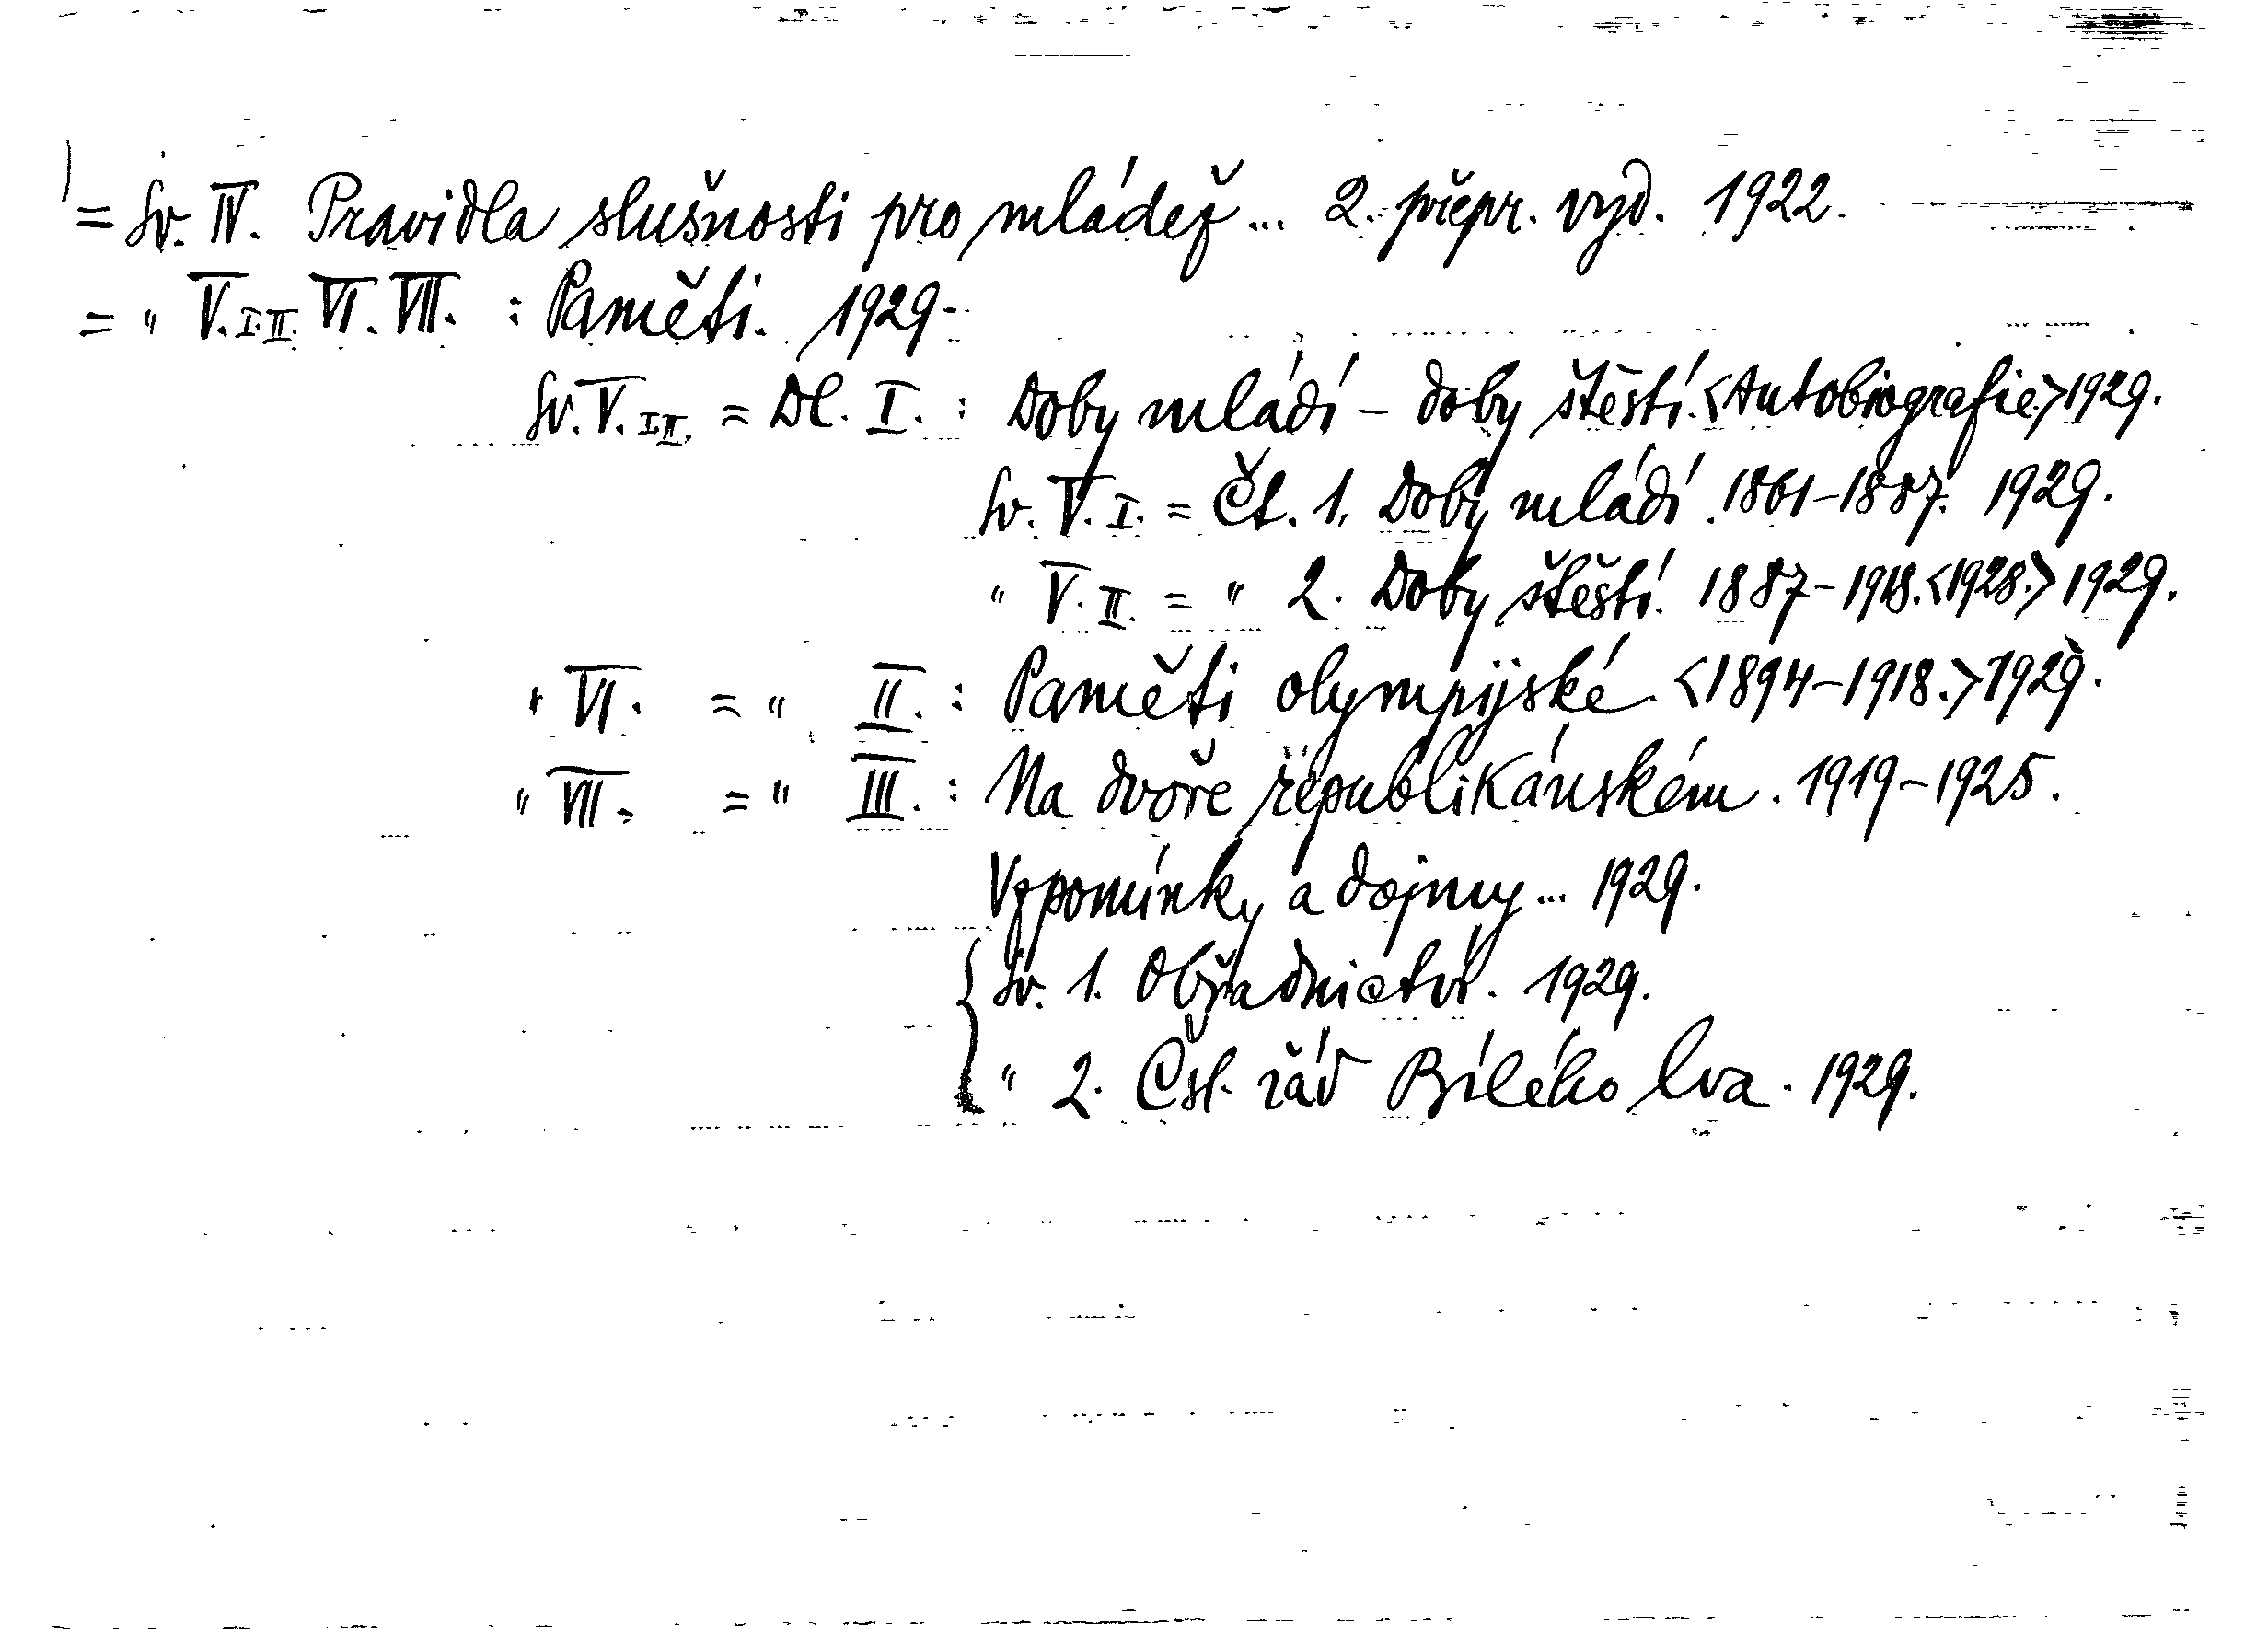 = Sv. IV. Pravidla slušnosti pro mládež ... 2. přepr. vyd. 1922.
= " V.I.II. VI. VII. : Paměti. 1929.
Sv. V. I.II. = Dl. I. : Doby mládí - doby štěstí. <Autobiografie.> 1929.
Sv. V. I. = Čt. 1. Doby mládí. 1861-1887. 1929.
" V. II. = " 2. Doby štěstí. 1887-1918. <1928.> 1929.
" VI. = " II. : Paměti olympijské. <1894-1918.> 1929.
" VII. = " III. : Na dvoře republikánském. 1919-1925.
Vzpomínky a dojmy ... 1929.
Sv. 1. Obřadnictví. 1929.
" 2. Čsl. řád Bílého lva. 1929.